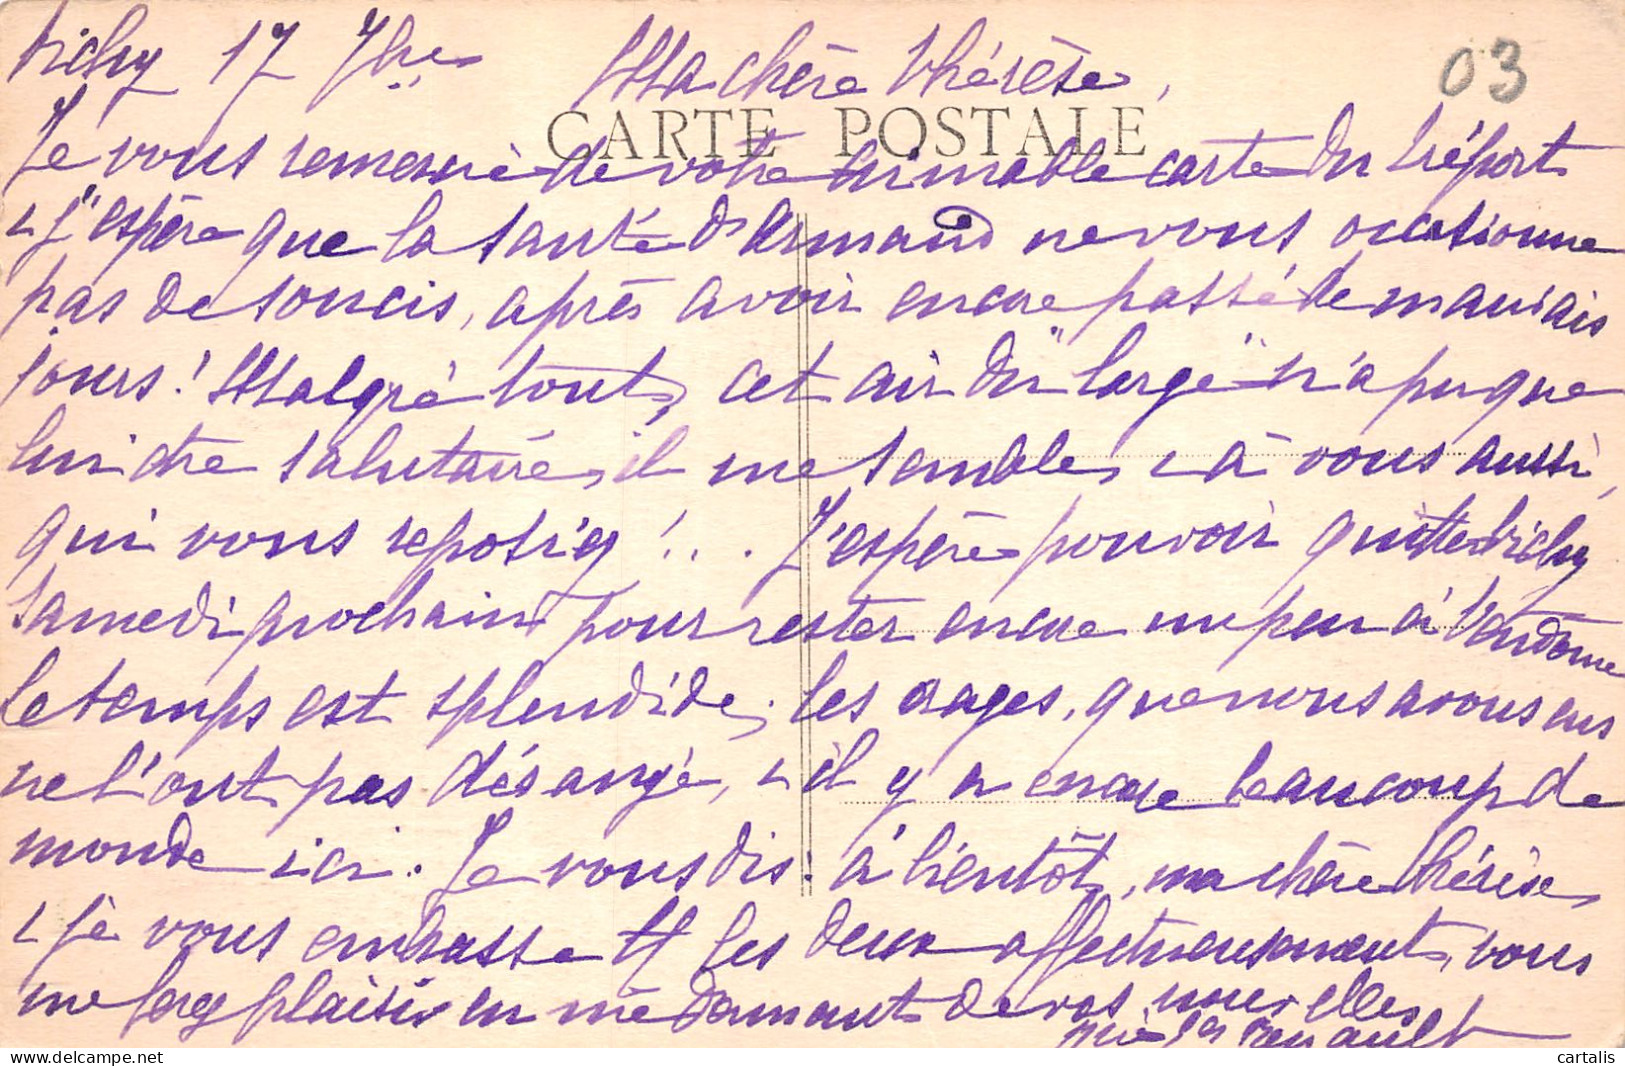 Vichy 17 7bre Ma chère Thérèse,
03
CARTE POSTALE
Je vous remercie de votre aimable carte du Tréport
& j'espère que la santé d'Armand ne vous occasionne
pas de soucis, après avoir encore passé de mauvais
jours! Malgré tout, cet air du "large" n'a pu que
lui être salutaire, il me semble, & à vous aussi,
qui vous reposiez!... J'espère pouvoir quitter Vichy
Samedi prochain pour rester encore un peu à Vendôme
le temps est splendide. les orages, que nous avons eus
ne l'ont pas dérangé, & il y a encore beaucoup de
monde ici. Je vous dis: à bientôt, ma chère Thérèse,
& je vous embrasse tt les deux affectueusement, vous
me ferez plaisir en me donnant de vos nouvelles
Renault
cartalis